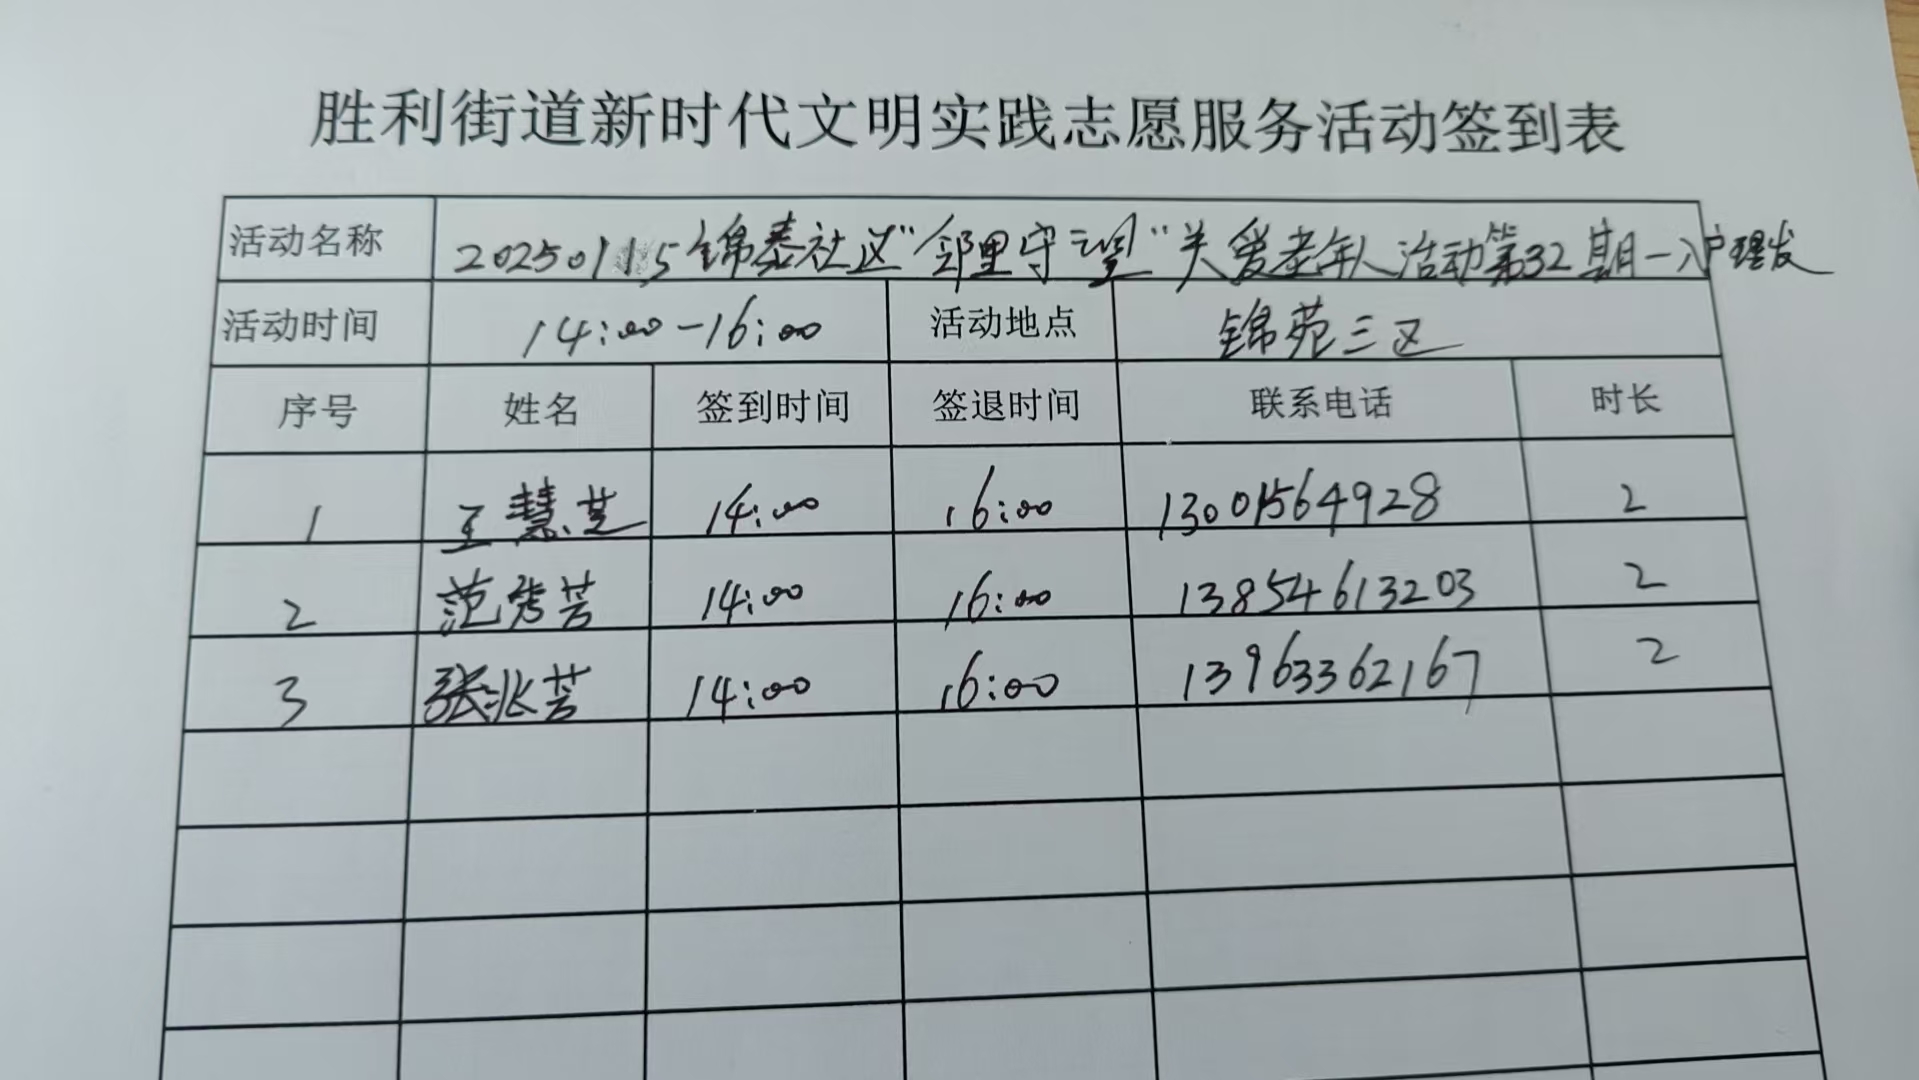 胜利街道新时代文明实践志愿服务活动签到表
活动名称 20250115锦泰社区“邻里守望”关爱老年人活动第32期—入户理发
活动时间 14:00-16:00 活动地点 锦苑三区
序号 姓名 签到时间 签退时间 联系电话 时长
1 王慧芝 14:00 16:00 13001564928 2
2 范秀芳 14:00 16:00 13854613203 2
3 张兆芳 14:00 16:00 13963362167 2